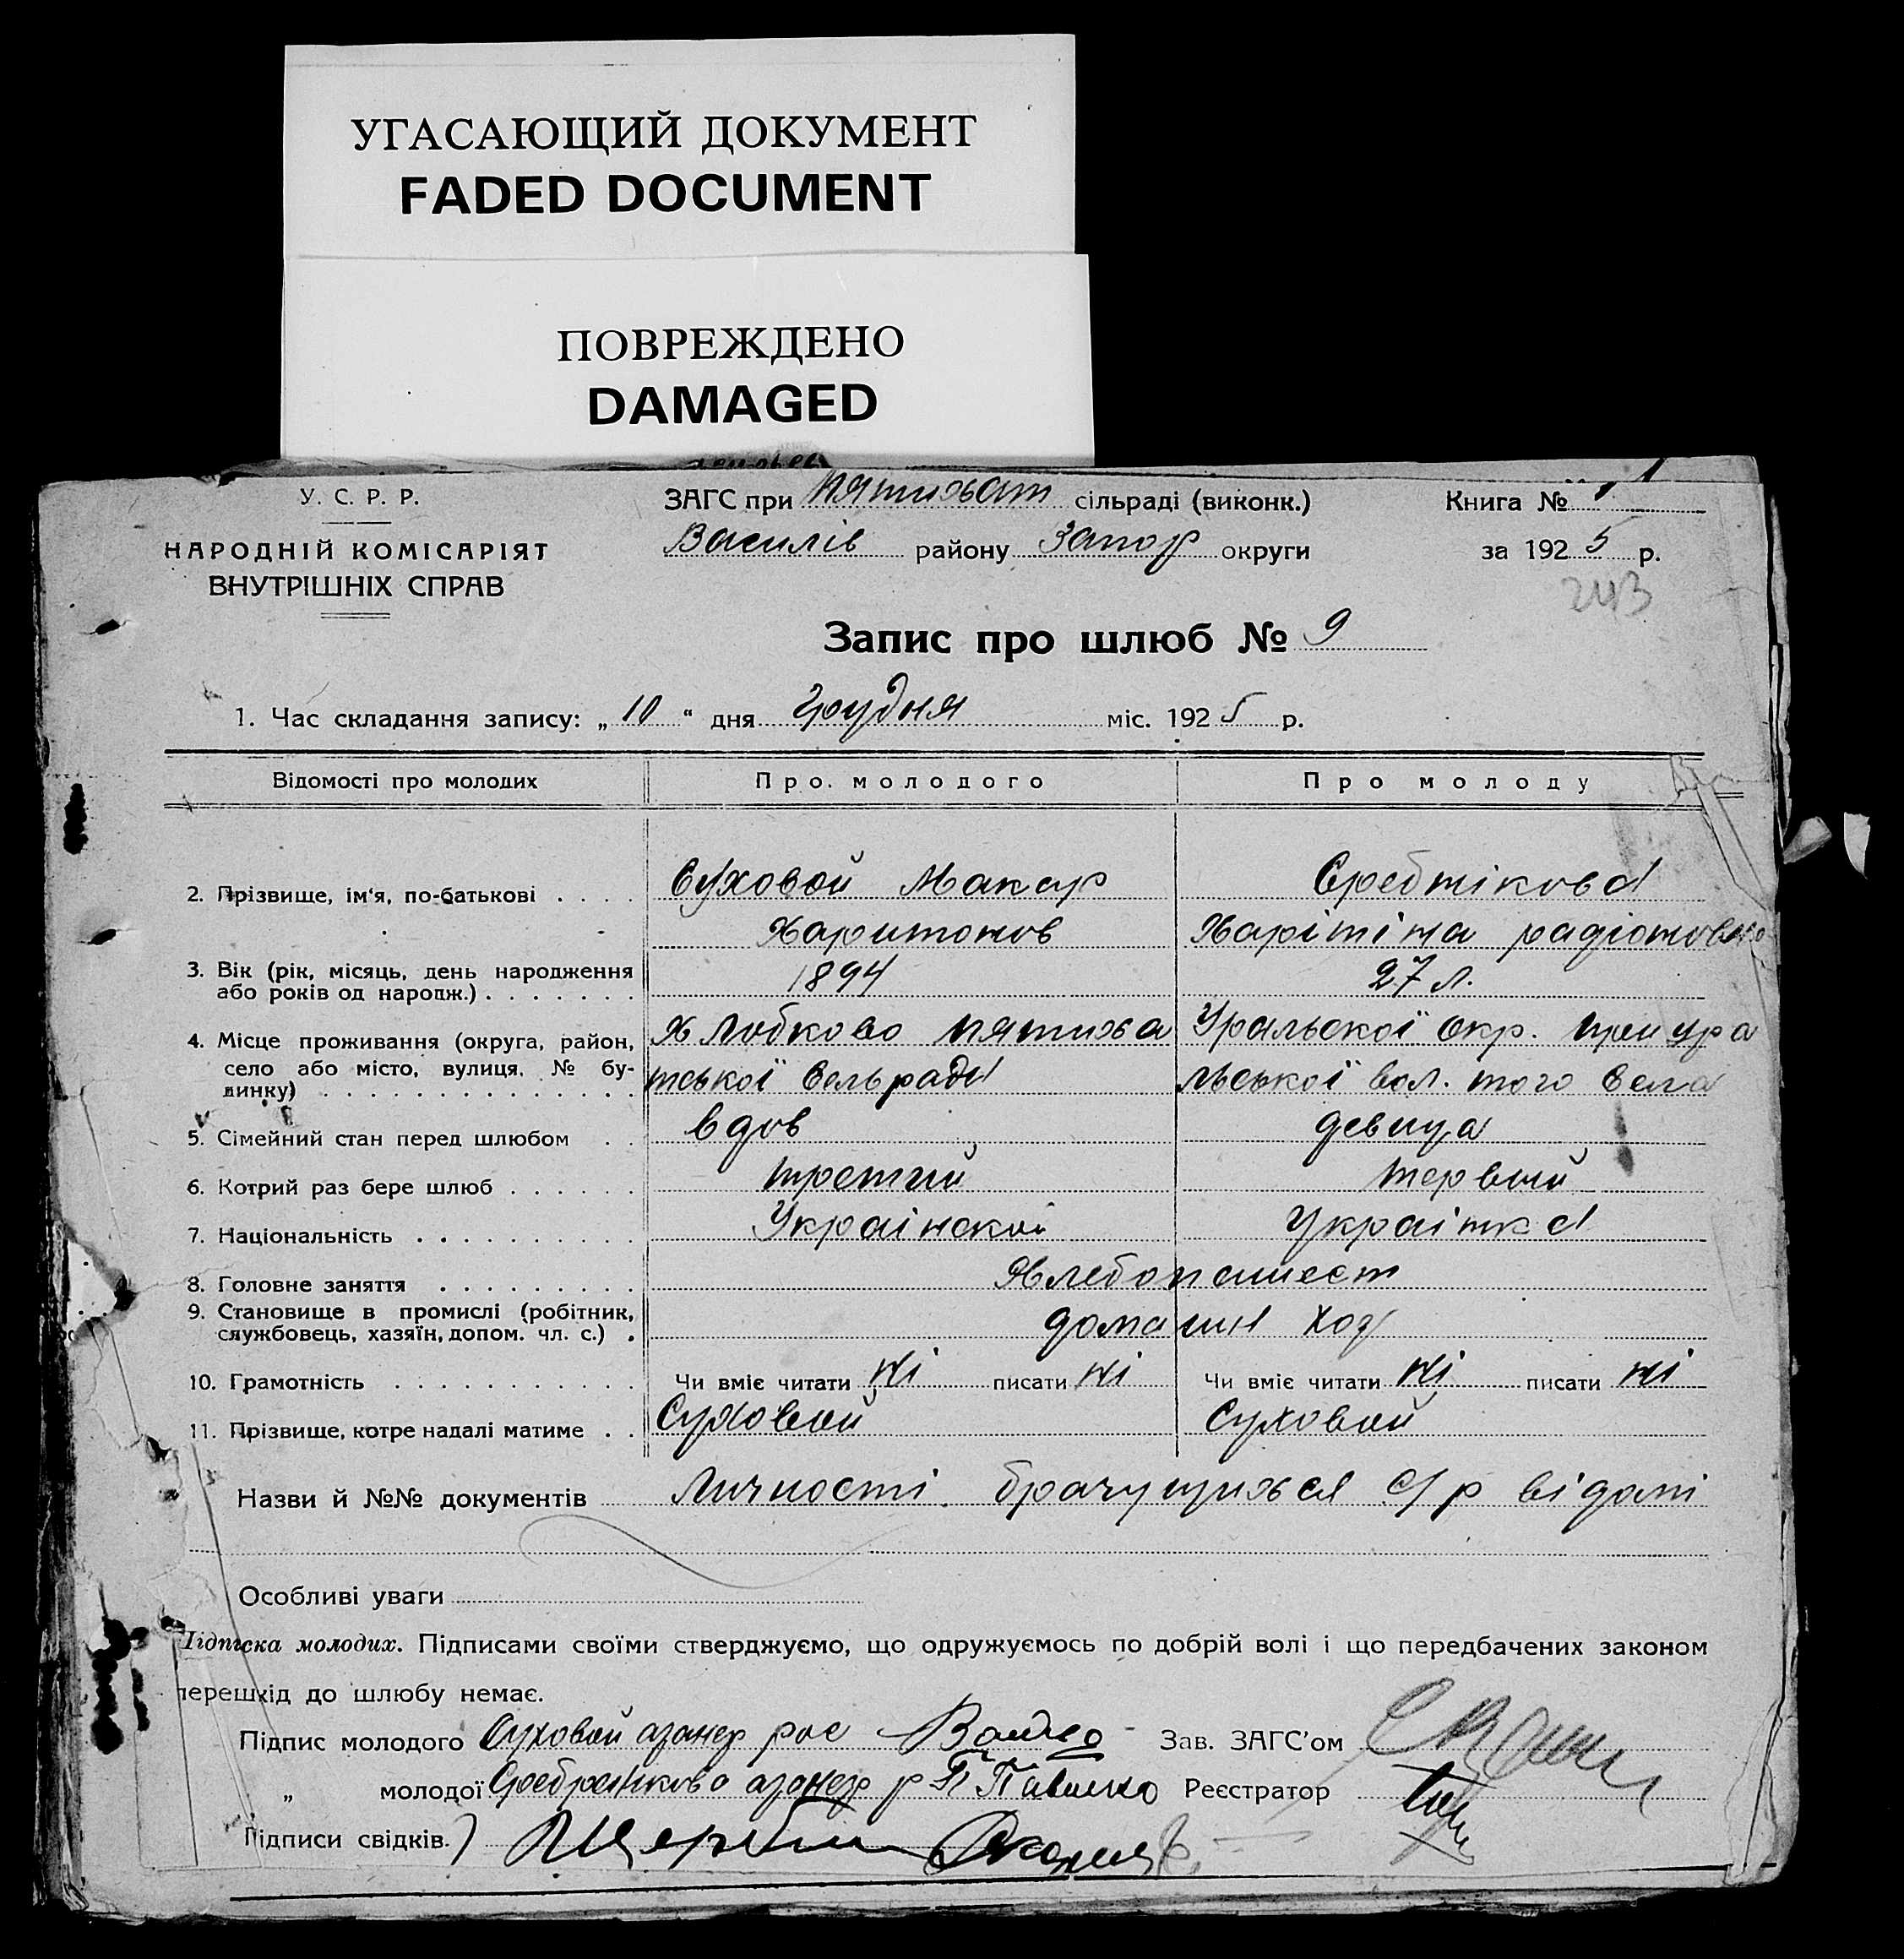 УГАСАЮЩИЙ ДОКУМЕНТ
FADED DOCUMENT
ПОВРЕЖДЕНО
DAMAGED
У. С. Р. Р.
НАРОДНІЙ КОМІСАРІЯТ
ВНУТРІШНІХ СПРАВ
ЗАГС при Пятихат сільраді (виконк.)
Василів району Запор округи
Книга № 1
за 1925 р.
243
Запис про шлюб № 9
1. Час складання запису: „10“ дня Грудня міс. 1925 р.
Відомості про молодих Про молодого Про молоду
2. Прізвище, ім'я, по-батькові . . . . Суховой Макар
Харитонов
Харітіна радіоновна
3. Вік (рік, місяць, день народження або років од народж.) . . . . . . . 1894 27 л.
4. Місце проживання (округа, район, село або місто, вулиця, № будинку) . . . . . . . . . . . . . . Х Любково Пятиха Уральскої Окр. Приура
тської Сельради льської вол. того села
5. Сімейний стан перед шлюбом . . вдов девица
6. Котрий раз бере шлюб . . . . . . третий первый
7. Національність . . . . . . . . . . Украінской Украінка
8. Головне заняття . . . . . . . . .
9. Становище в промислі (робітник, службовець, хазяїн, допом. чл. с.) .
10. Грамотність . . . . . . . . . . . Чи вміє читати ні писати ні Чи вміє читати ні писати ні
11. Прізвище, котре надалі матиме . . Суховой Суховой
Назви й №№ документів Личності брачущихся С/р відомі
Особливі уваги
Підписка молодих. Підписами своїми стверджуємо, що одружуємось по добрій волі і що передбачених законом
перешкід до шлюбу немає.
Підпис молодого Суховой Зав. ЗАГС'ом
„ молодої Реєстратор
Підписи свідків